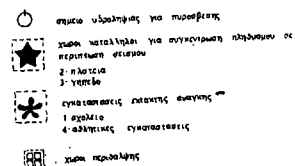 σημειο υδροληψιας για πυροσβεση
χωροι καταλληλοι για συγκεντρωση πληθυσμου σε
περιπτωση σεισμου
2· πλατεια
3· γηπεδο
εγκαταστασεις εκτακτης αναγκης
1 σχολειο
4· αθλητικες εγκαταστασεις
χωροι περιθαλψης